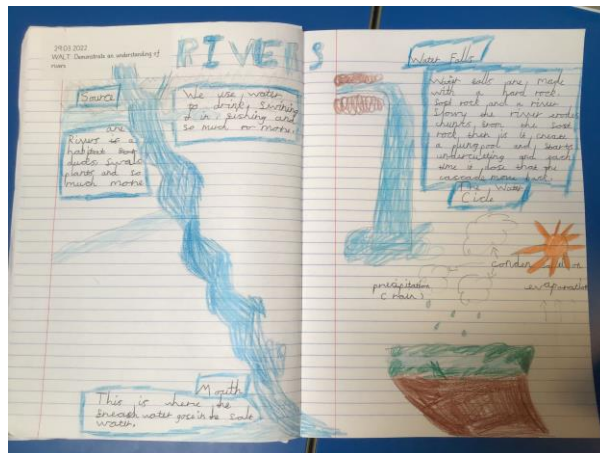 29.03.2022
WALT: Demonstrate an understanding of
rivers
RIVERS
Source
We use water
to drink, swiming
in fishing and
so much mor more.
are
Rivers is a
habitat for
ducks swals
plants and so
much more
Mouth
This is where the
water goes in the salt
water.
Water Falls
Water falls are made
with a hard rock
soft rock and a river
Slowy the river erode
chunks from the soft
rock then it is create
a plungpool and starts
undercutting and each
time is dose that the
cascade move back
The Water
Cicle
precipitation
(rain)